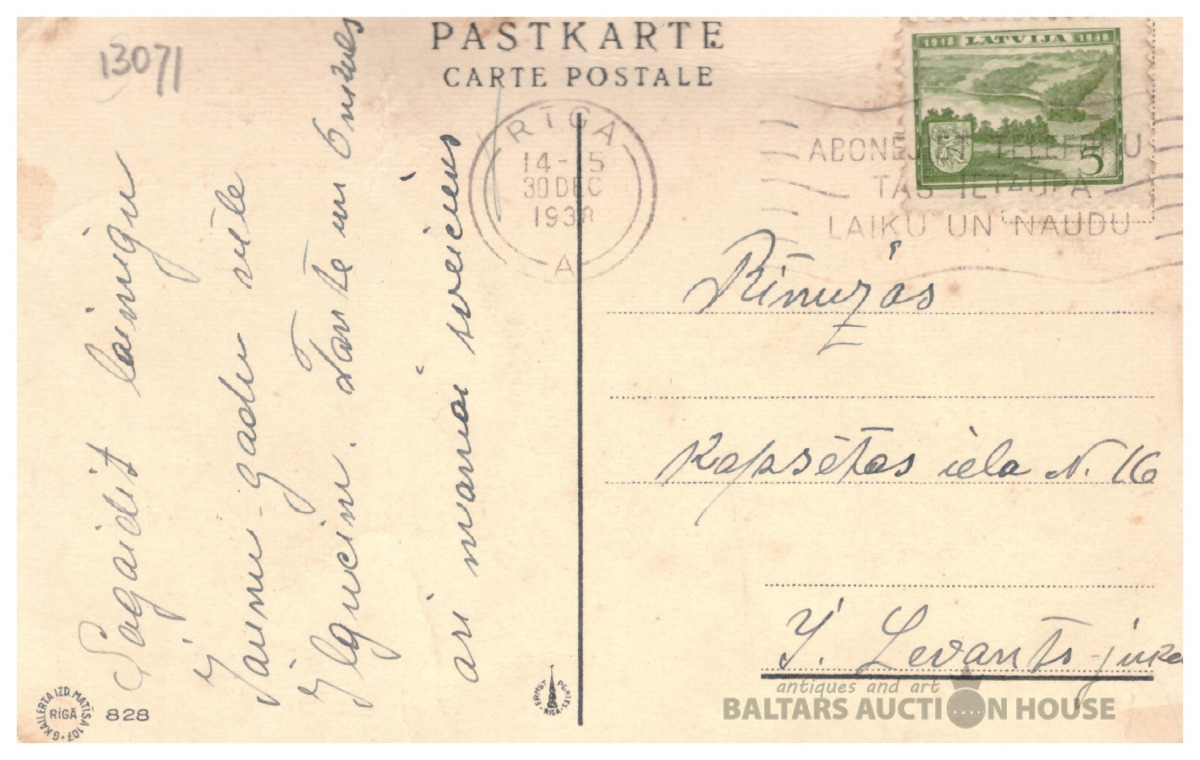 13071
PASTKARTE
CARTE POSTALE
1918 LATVIJA 1938
5
RĪGA
14-15
30 DEC
1938
A
ABONĒJAT TELEFONU
TAS IETAUPA
LAIKU UN NAUDU
Sagaidit laimigu
Jaunu gadu vēle
Ilgucim. Tante un Onkuls
ari manai sveiciens
Rīnuzās
Kapsētas iela N. 16
J. Levants
G. KALLERTA IZD. MATĪSA 107
RĪGĀ
828
ERNST PLATES
RIGA
antiques and art
BALTARS AUCTION HOUSE